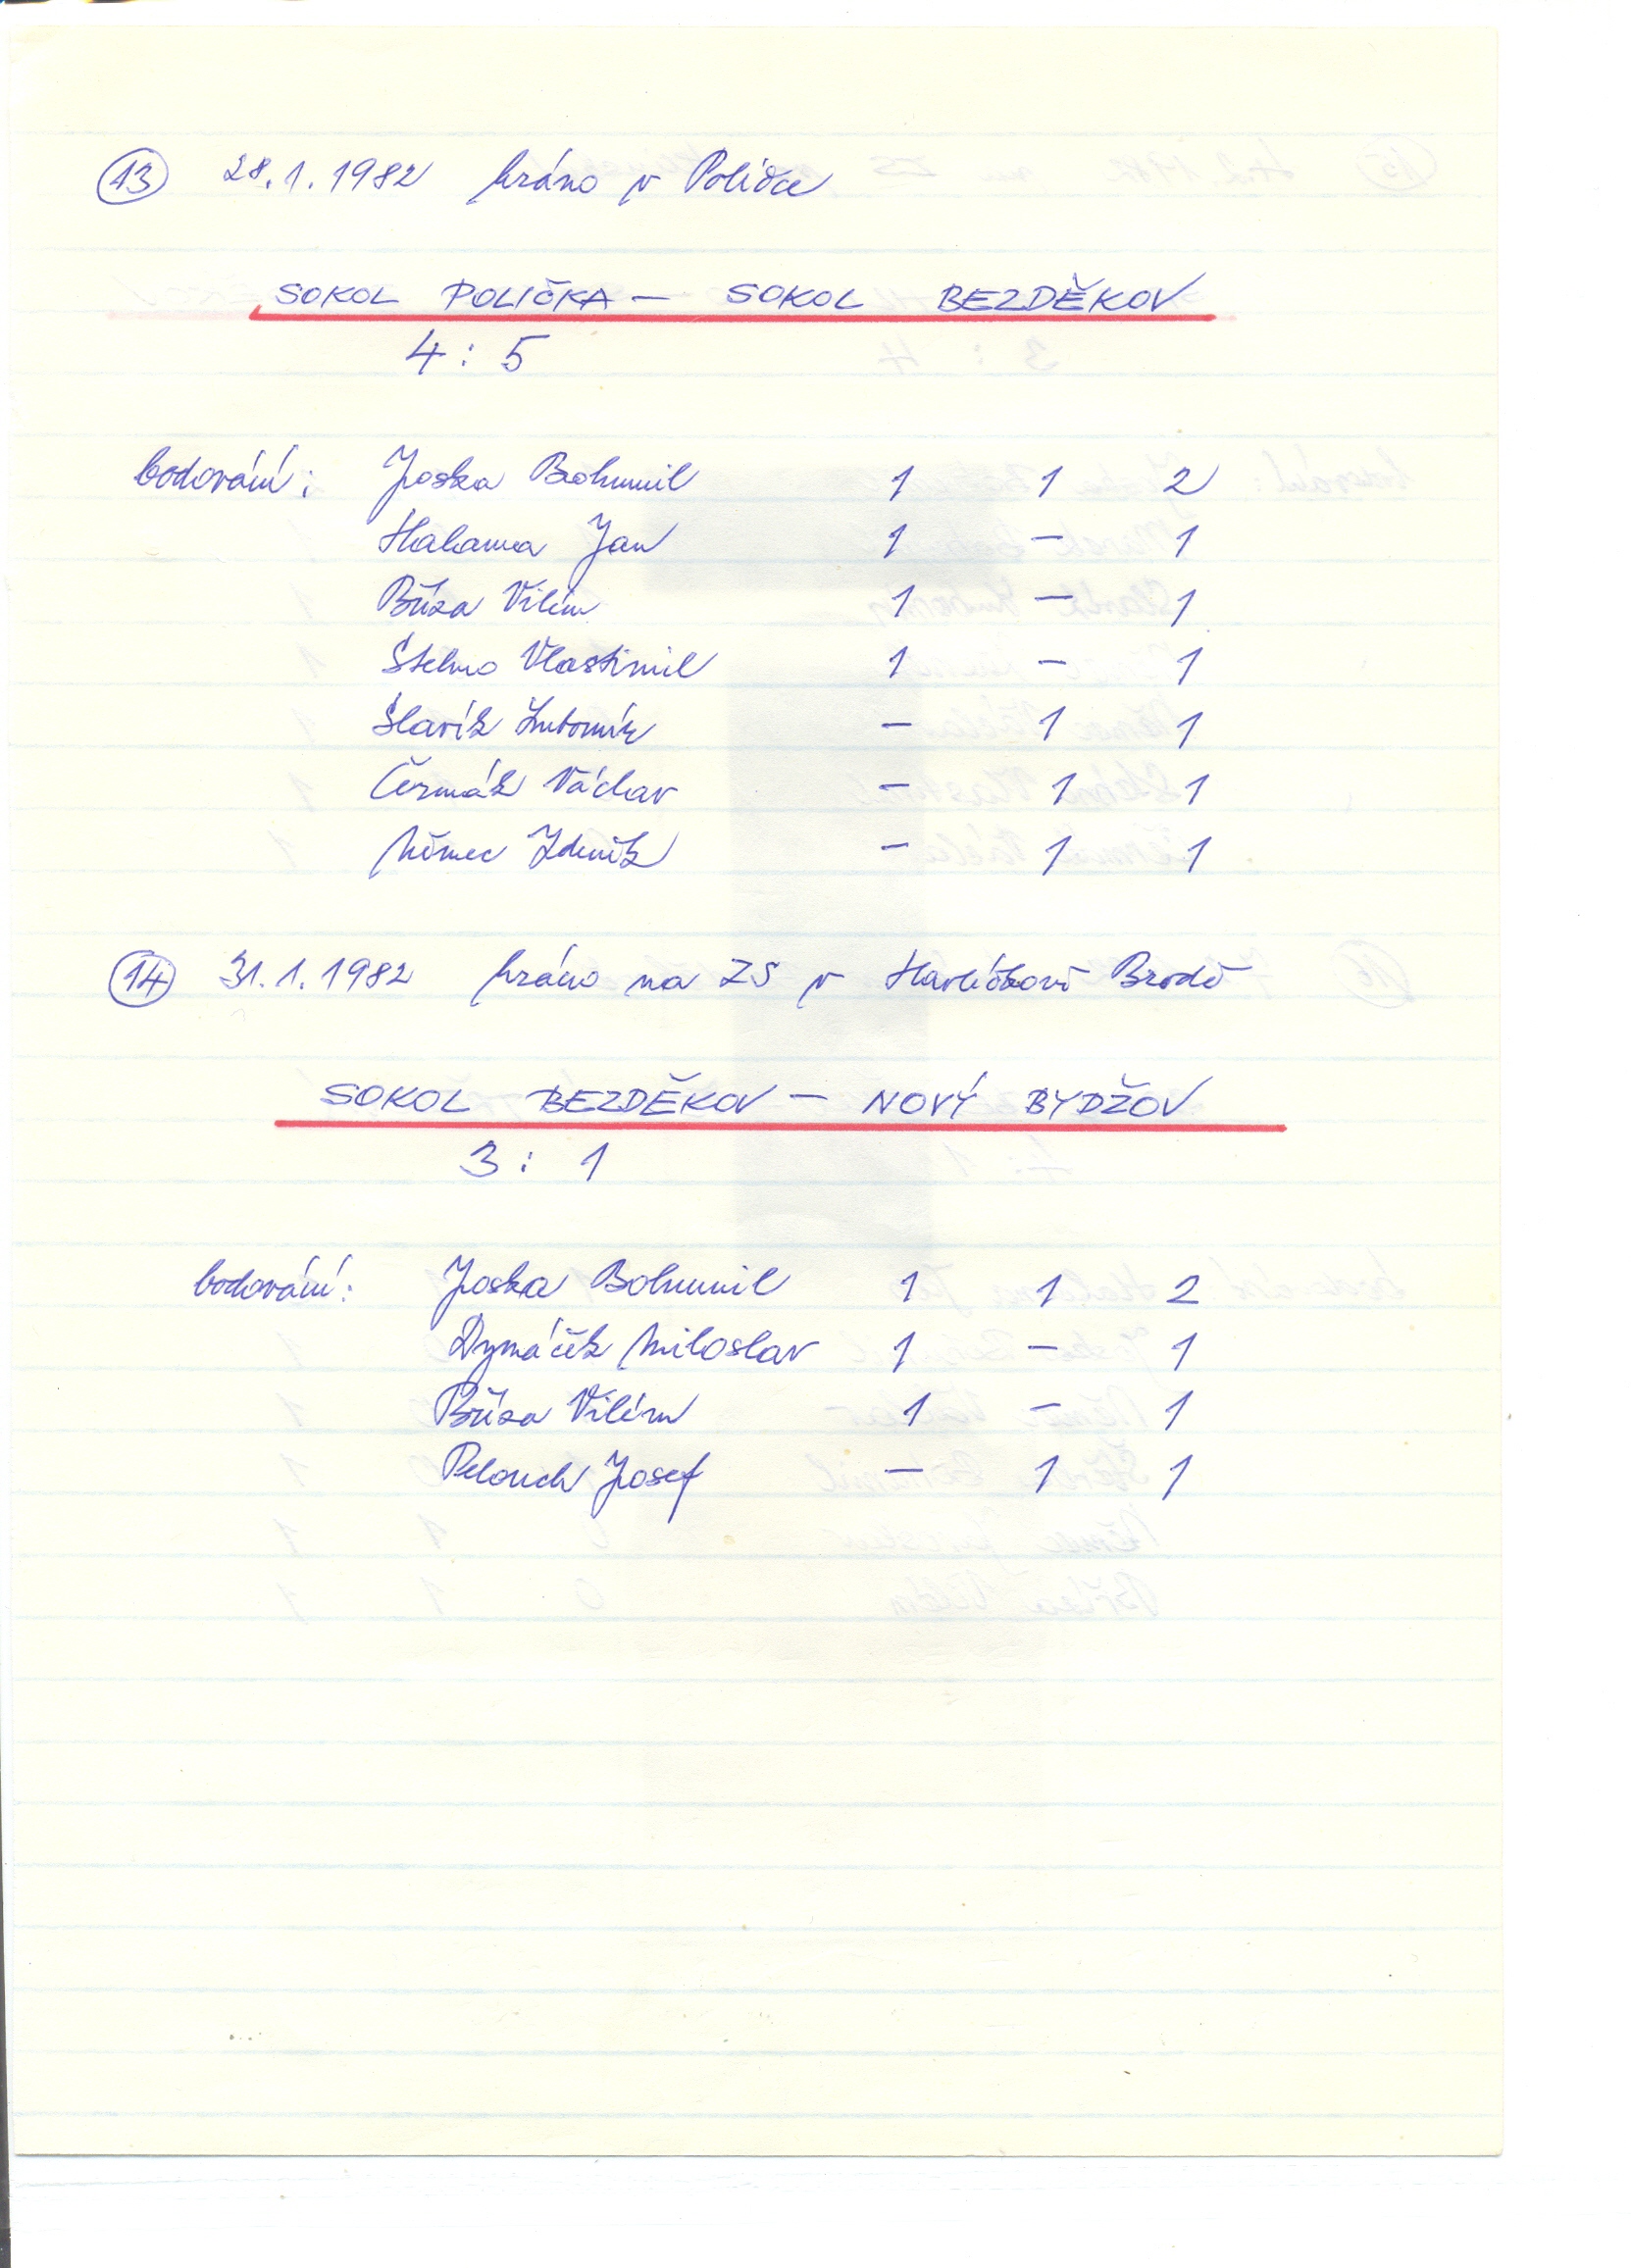 13 28.1.1982 hráno v Poličce
SOKOL POLIČKA – SOKOL BEZDĚKOV
4 : 5
bodování: Joska Bohumil 1 1 2
Halama Jan 1 – 1
Bůza Vilém 1 – 1
Vlastimil 1 – 1
Slavík Lubomír – 1 1
Čermák Václav – 1 1
Němec Zdeněk – 1 1
14 31.1.1982 hráno na ZS v Havlíčkově Brodě
SOKOL BEZDĚKOV – NOVÝ BYDŽOV
3 : 1
bodování: Joska Bohumil 1 1 2
Dymáček Miloslav 1 – 1
Bůza Vilém 1 – 1
Pelouch Josef – 1 1